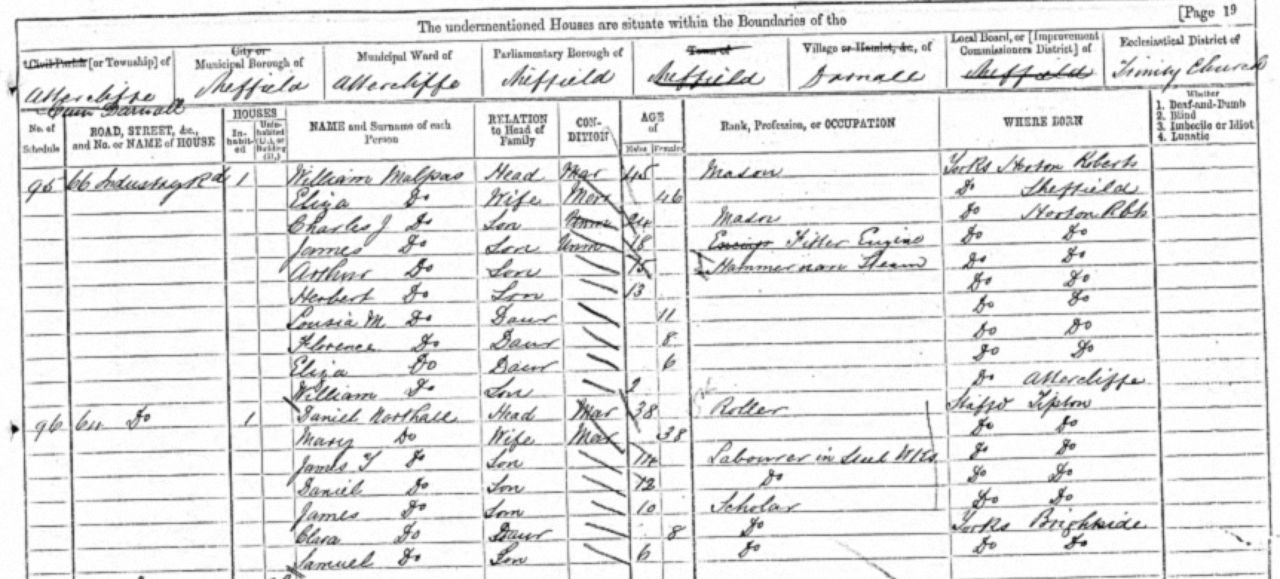 The undermentioned Houses are situate within the Boundaries of the [Page 19
Civil Parish [or Township] of City or Municipal Borough of Municipal Ward of Parliamentary Borough of Town of Village or Hamlet, &c., of Local Board, or [Improvement Commissioners District] of Ecclesiastical District of
Attercliffe cum Darnall Sheffield Attercliffe Sheffield Sheffield Darnall Sheffield Trinity Church
No. of Schedule ROAD, STREET, &c., and No. or NAME of HOUSE HOUSES In-habit-ed Unin-habited (U.), or Building (B.) NAME and Surname of each Person RELATION to Head of Family CON-DITION AGE of Males Females Rank, Profession, or OCCUPATION WHERE BORN Whether 1. Deaf-and-Dumb 2. Blind 3. Imbecile or Idiot 4. Lunatic
95 66 Industry Rd 1 William Malpas Head Mar 45 Mason Yorks Hooton Roberts
Eliza Do Wife Mar 46 Do Sheffield
Charles J Do Son Unm 24 Mason Do Hooton Rbts
James Do Son Unm 18 Fitter Engine Do Do
Arthur Do Son 15 Hammerman Steam Do Do
Herbert Do Son 13 Do Do
Lousia M Do Daur 11 Do Do
Florence Do Daur 8 Do Do
Eliza Do Daur 6 Do Do
William Do Son 2 Do Attercliffe
96 64 Do 1 Daniel Northall Head Mar 38 Roller Staffd Tipton
Mary Do Wife Mar 38 Do Do
James T Do Son 14 Labourer in Steel Wks Do Do
Daniel Do Son 12 Do Do Do
James Do Son 10 Scholar Do Do
Clara Do Daur 8 Do Yorks Brightside
Samuel Do Son 6 Do Do Do